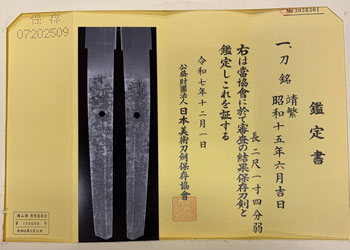 鑑定書
一、刀 銘 靖繁
昭和十五年六月吉日
長二尺一寸四分弱
右は當協會に於て審査の結果保存刀剣と
鑑定しこれを証する
令和七年十二月一日
公益財団法人日本美術刀剣保存協會
保存
07202509
№1038301